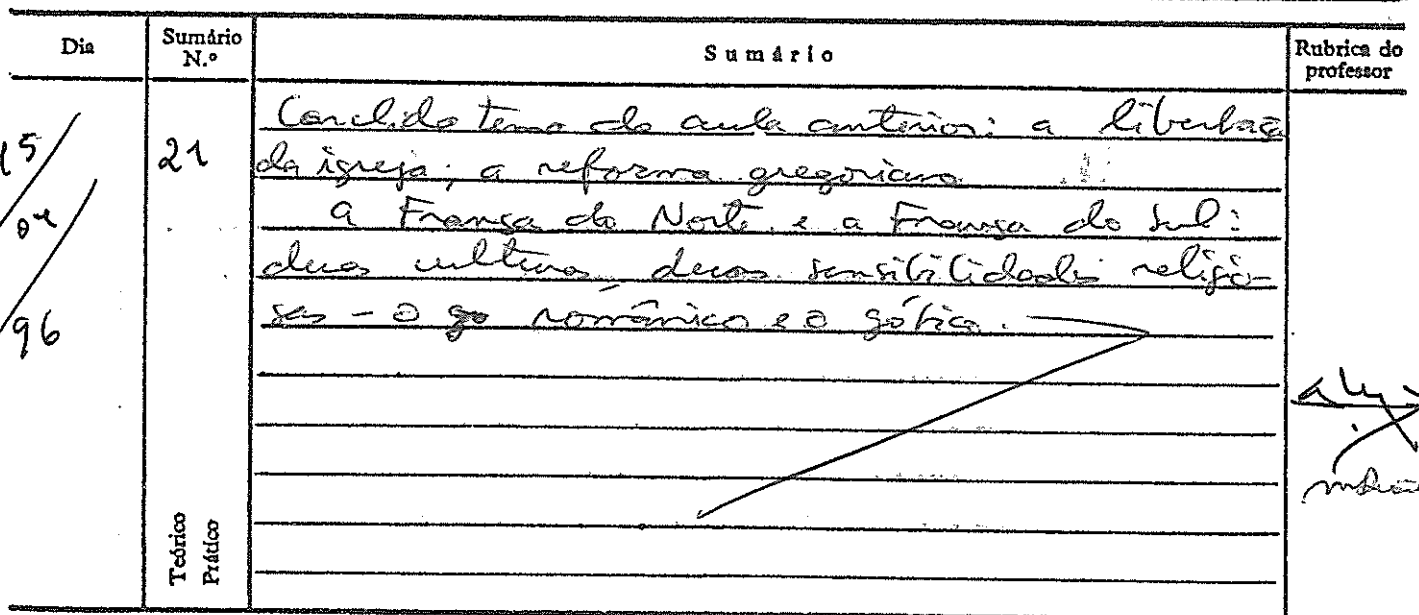 Dia
Sumário N.º
Sumário
Rubrica do professor
15/04/96
21
Concluído tema da aula anterior: a libertação
da igreja; a reforma gregoriana
A França do Norte e a França do Sul:
duas culturas duas sensibilidades religio-
sas - o românico e o gótico.
Teórico
Prático